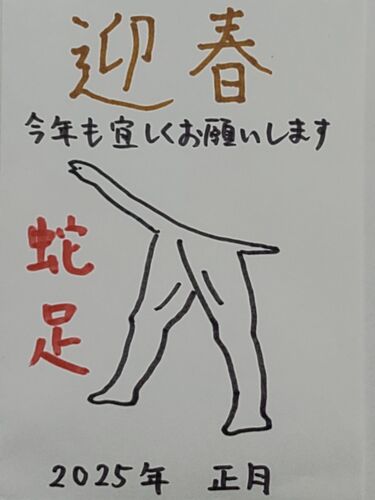 迎春
今年も宜しくお願いします
蛇足
2025年 正月